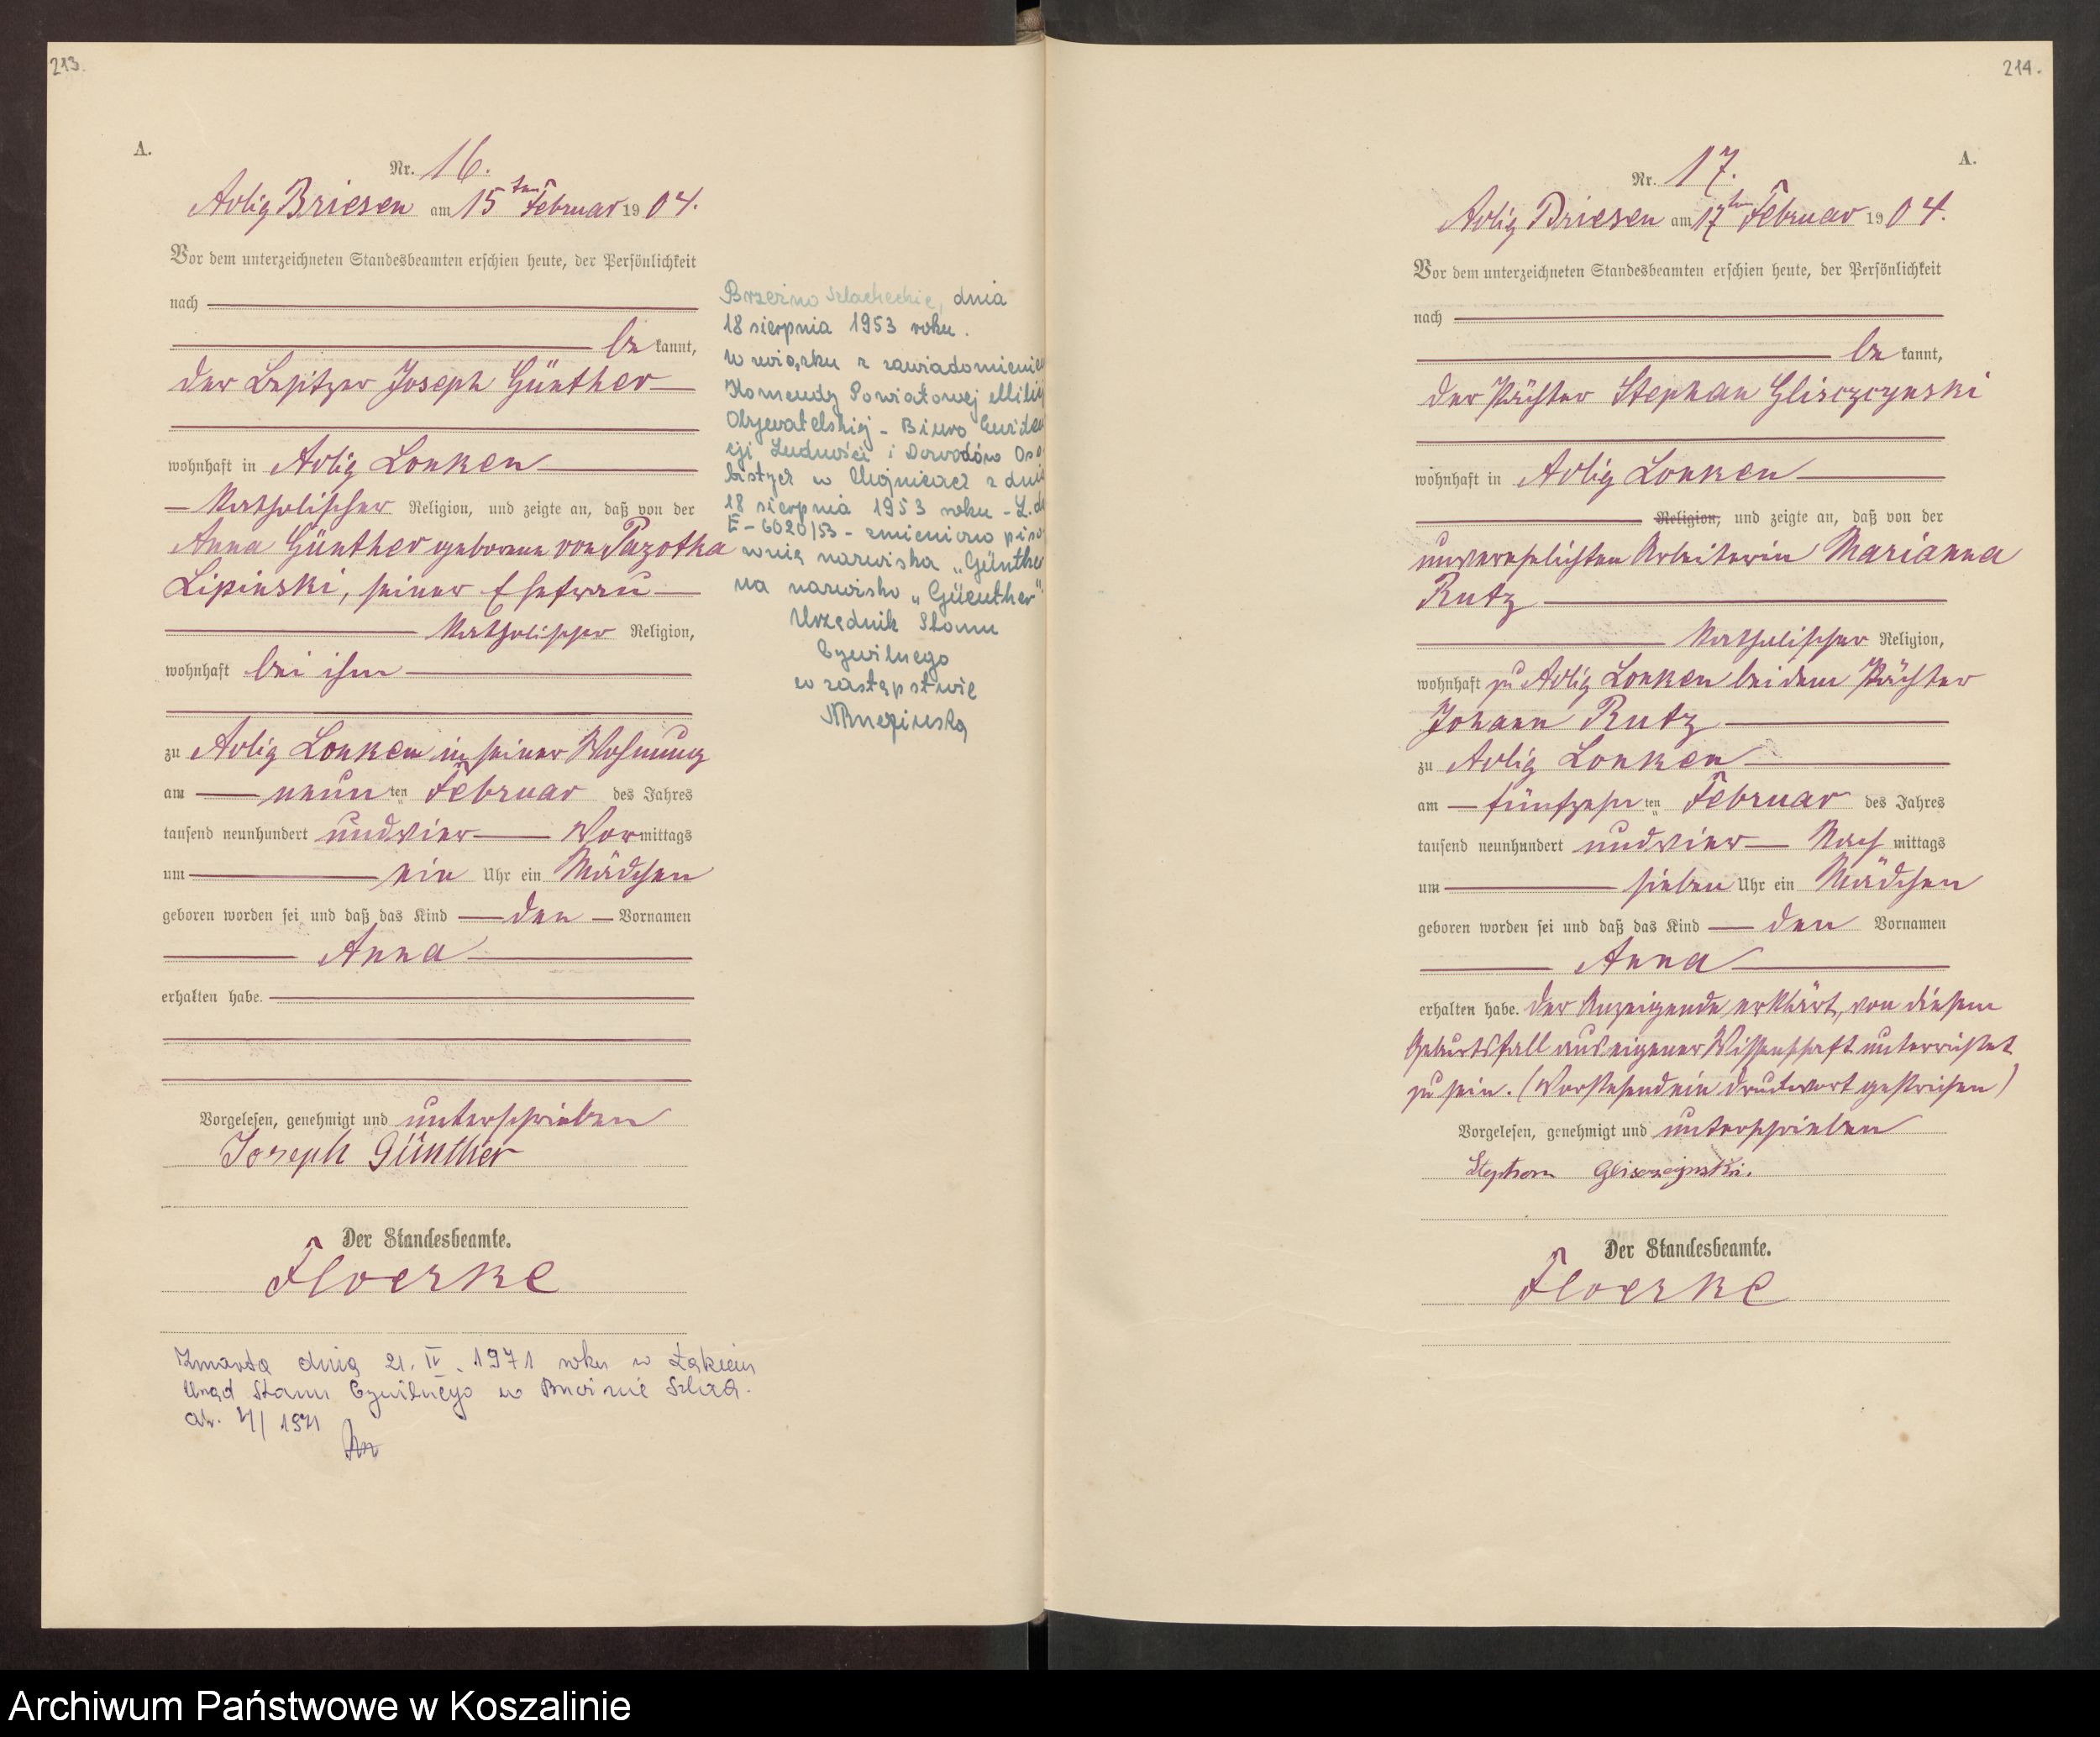 213.
A.
Nr. 16.
Adlig Briesen am 15ten Februar 1904.
Vor dem unterzeichneten Standesbeamten erschien heute, der Persönlichkeit
nach
bekannt,
der Besitzer Joseph Günther
wohnhaft in Adlig Lonken
katholischer Religion, und zeigte an, daß von der
Anna Günther geborenen von Pazotka
Lipinski, seiner Ehefrau
katholischer Religion,
wohnhaft bei ihm
zu Adlig Lonken in seiner Wohnung
am neunten Februar des Jahres
tausend neunhundert und vier Vormittags
um ein Uhr ein Mädchen
geboren worden sei und daß das Kind den Vornamen
Anna
erhalten habe.
Vorgelesen, genehmigt und unterschrieben
Joseph Günther
Der Standesbeamte.
Floerke
Zmarła dnia 21. IV. 1971 roku w Łąkiem
Urząd Stanu Cywilnego w Szlach.
1971
Brzeźno Szlacheckie, dnia
18 sierpnia 1953 roku.
W związku z zawiadomieniem
Komendy Powiatowej Milicji
Obywatelskiej - Biuro Ewiden
cji Ludności i Dowodów Oso
bistych w Chojnicach z dnia
18 sierpnia 1953 roku - L.dz
E-6020/53 - zmieniono piso
wnię nazwiska „Günther
na nazwisko „Güenther".
Urzędnik Stanu
Cywilnego
w zastępstwie
214.
A.
Nr. 17.
Adlig Briesen am 17ten Februar 1904.
Vor dem unterzeichneten Standesbeamten erschien heute, der Persönlichkeit
nach
bekannt,
der Pächter Stephan Glisczcynski
wohnhaft in Adlig Lonken
Religion, und zeigte an, daß von der
unverehelichten Arbeiterin Marianna
Rutz
katholischer Religion,
wohnhaft zu Adlig Lonken bei dem Pächter
Johann Rutz
zu Adlig Lonken
am fünfzehnten Februar des Jahres
tausend neunhundert und vier Nachmittags
um sieben Uhr ein Mädchen
geboren worden sei und daß das Kind den Vornamen
Anna
erhalten habe. Der Anzeigende erklärt, von diesem
Geburtsfall aus eigener Wissenschaft unterrichtet
zu sein. (Vorstehend ein Druckwort gestrichen)
Vorgelesen, genehmigt und unterschrieben
Stephan Glisczcynski.
Der Standesbeamte.
Floerke
Archiwum Państwowe w Koszalinie